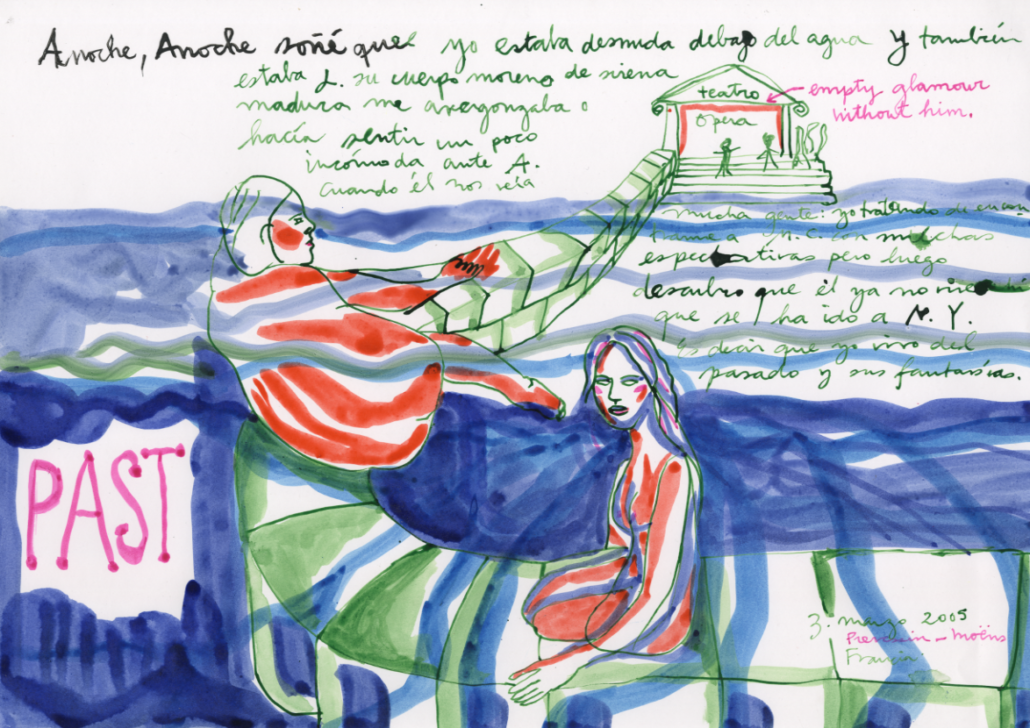 Anoche, Anoche soñé que yo estaba desnuda debajo del agua y también
estaba L. su cuerpo moreno de sirena
madura me avergonzaba o
hacía sentir un poco
incómoda ante A.
cuando él nos veía
teatro
opera
empty glamour
without him.
mucha gente: yo tratando de
a M.C. con muchas
espectativas pero luego
descubro que él ya no vive
que se ha ido a N. Y.
Es decir que yo vivo del
pasado y sus fantasías.
PAST
3. marzo 2005
Francia